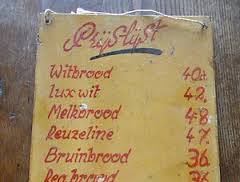 Prijslijst
Witbrood 40ct
lux wit 42.
Melkbrood 48
Reuzeline 47.
Bruinbrood 36.
Reg.brood 36